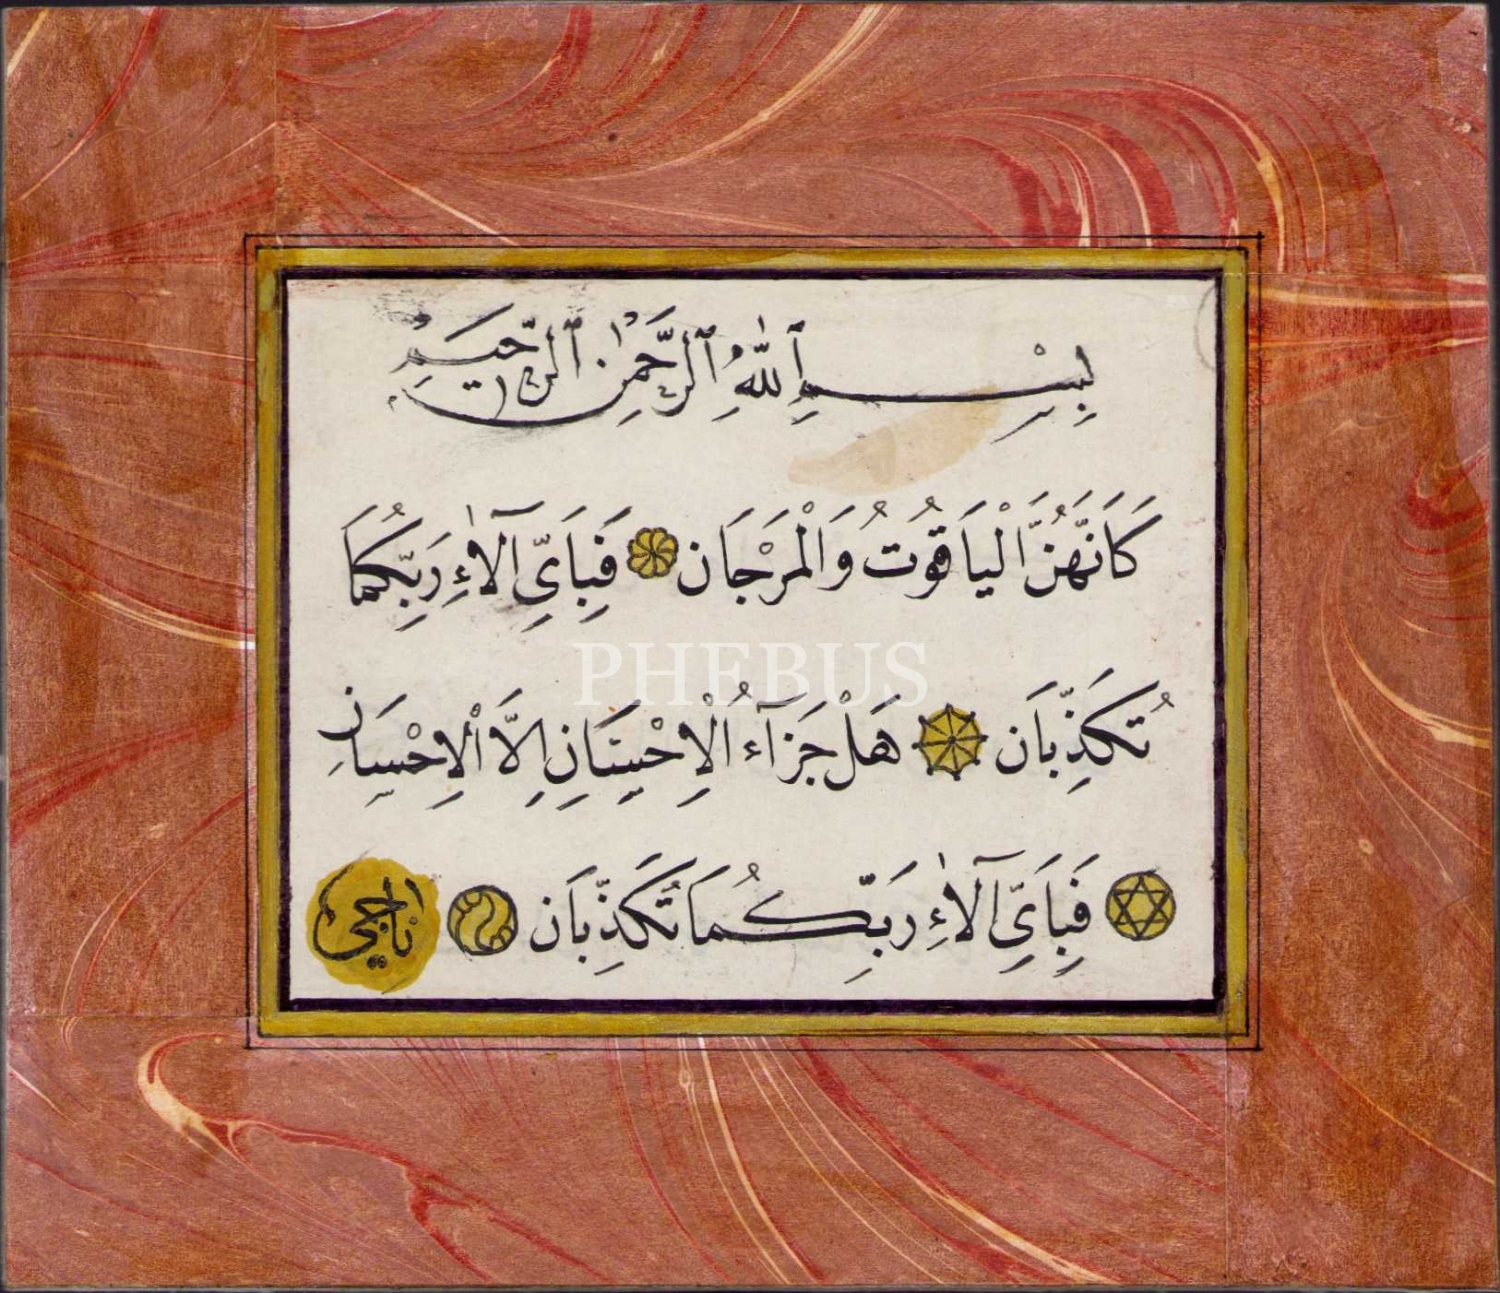 بِسْـــــمِ ٱللّٰهِ ٱلرَّحْمٰنِ ٱلرَّحيمِ
كَاَنَّهُنَّ الْيَاقُوتُ وَالْمَرْجَان فَبِاَىِّ آلَاٰءِ رَبِّكُمَا
تُكَذِّبَان هَلْ جَزَٓاءُ الْاِحْسَانِ اِلَّا الْاِحْسَانِ
فَبِاَىِّ آلَاٰءِ رَبِّكُمَا تُكَذِّبَان ناجى
PHEBUS